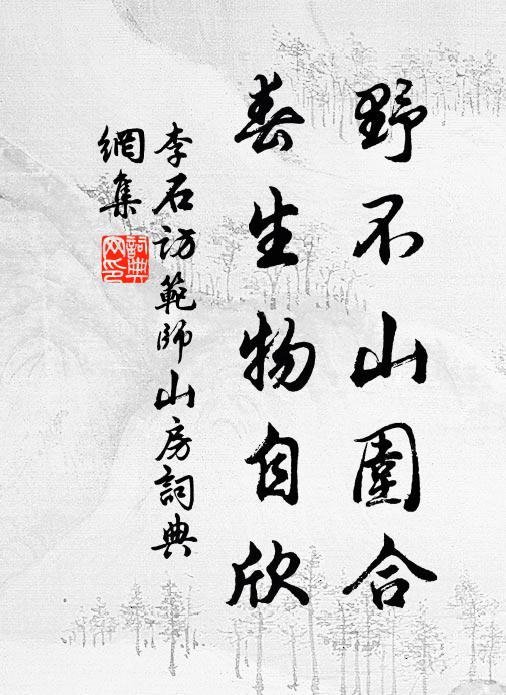 野不山圍合
春生物自欣
李石訪範師山房詞典
網集
詞典
网印